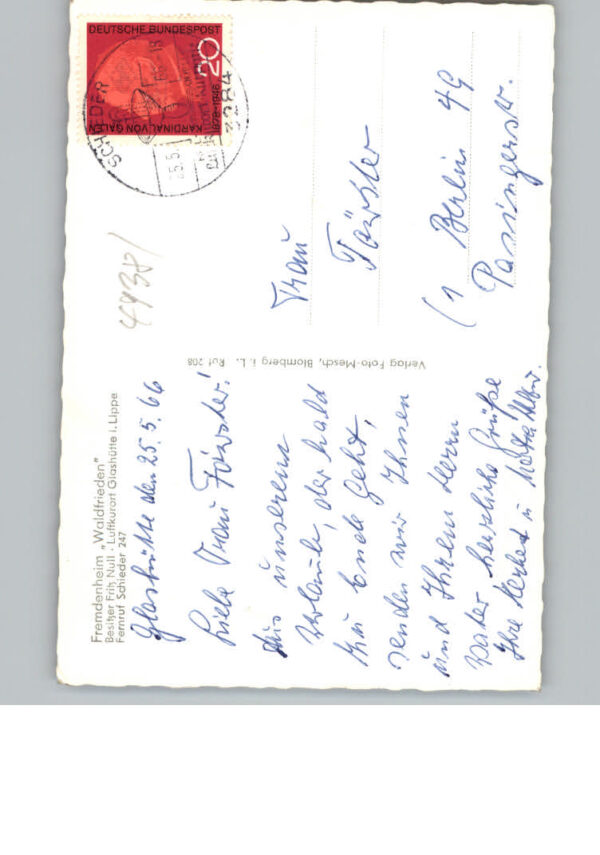 Fremdenheim „Waldfrieden"
Besitzer Fritz Null · Luftkurort Glashütte i. Lippe
Fernruf Schieder 247
Glashütte den 25.5.66
Liebe Frau Förster!
Aus unserem
Urlaub, der bald
zu Ende geht,
senden wir Ihnen
und Ihrem Herrn
Vater herzliche Grüße
Ihre Herbert u.
Verlag Foto-Mesch, Blomberg i. L. Ruf 208
4938/
DEUTSCHE BUNDESPOST
20
KARDINAL VON GALEN
1878-1946
SCHIEDER
3284
Frau
Förster
(1 Berlin 49
Passingerstr.